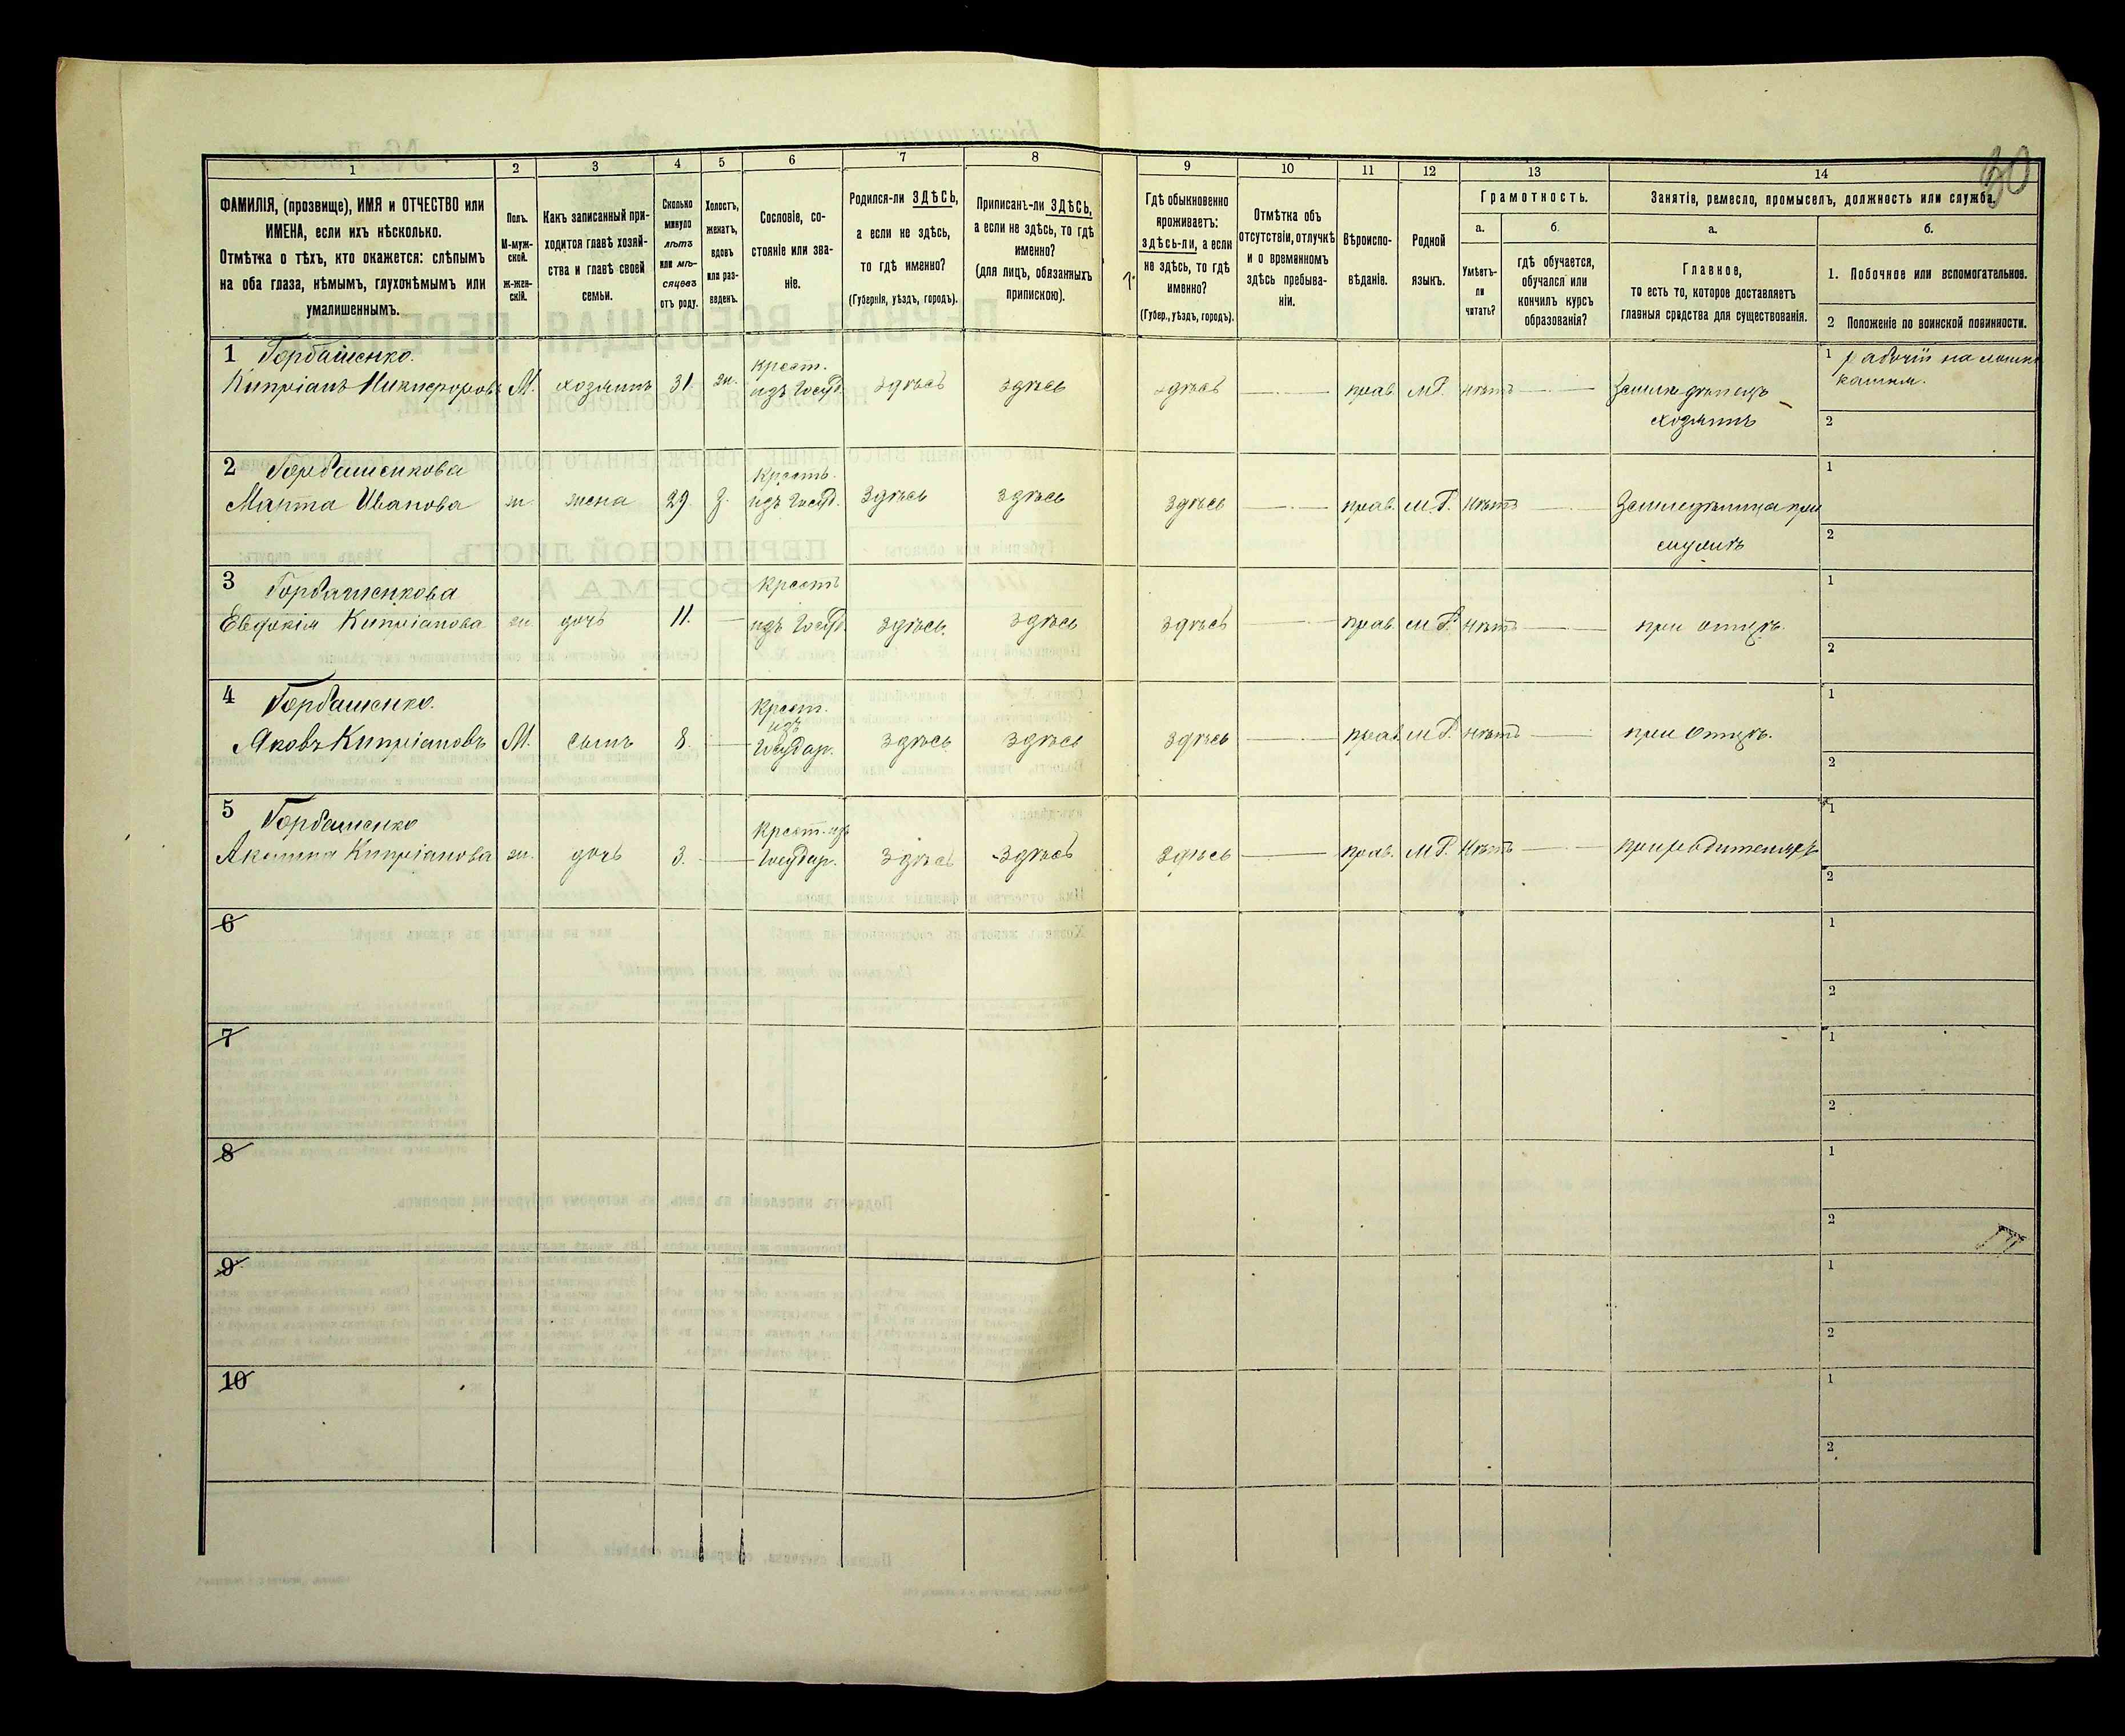 30
1 2 3 4 5 6 7 8 9 10 11 12 13 14
ФАМИЛІЯ, (прозвище), ИМЯ и ОТЧЕСТВО или
ИМЕНА, если ихъ нѣсколько.
Отмѣтка о тѣхъ, кто окажется: слѣпымъ
на оба глаза, нѣмымъ, глухонѣмымъ или
умалишеннымъ.
Полъ.
М-муж-
ской.
ж-жен-
скій.
Какъ записанный при-
ходится главѣ хозяй-
ства и главѣ своей
семьи.
Сколько
минуло
лѣтъ
или мѣ-
сяцевъ
отъ роду.
Холостъ,
женатъ,
вдовъ
или раз-
веденъ.
Сословіе, со-
стояніе или зва-
ніе.
Родился-ли ЗДѢСЬ,
а если не здѣсь,
то гдѣ именно?
(Губернія, уѣздъ, городъ).
Приписанъ-ли ЗДѢСЬ,
а если не здѣсь, то гдѣ
именно?
(для лицъ, обязанныхъ
припискою).
Гдѣ обыкновенно
проживаетъ:
здѣсь-ли, а если
не здѣсь, то гдѣ
именно?
(Губер., уѣздъ, городъ).
Отмѣтка объ
отсутствіи, отлучкѣ
и о временномъ
здѣсь пребыва-
ніи.
Вѣроиспо-
вѣданіе.
Родной
языкъ.
Грамотность.
а.
Умѣетъ-
ли
читать?
б.
гдѣ обучается,
обучался или
кончилъ курсъ
образованія?
Занятія, ремесло, промыселъ, должность или служба.
а.
Главное,
то есть то, которое доставляетъ
главныя средства для существованія.
б.
1. Побочное или вспомогательное.
2 Положеніе по воинской повинности.
1 Горбашенко.
Кипріанъ Никифоровъ М. хозяинъ 31. ж. Крест. изъ Госуд. здѣсь здѣсь здѣсь прав. М.Р. нѣтъ Земледѣлецъ
хозяинъ
1 рабочій на
2
2 Горбашенкова
Марта Иванова ж. жена 29. З. Крестъ. изъ Госуд. здѣсь здѣсь здѣсь прав. М.Р. нѣтъ Земледѣлица при
мужѣ
1
2
3 Горбашенкова
Евдокія Кипріанова ж. дочь 11. Крестъ изъ Госуд. здѣсь. здѣсь здѣсь прав. М.Р. нѣтъ при отцѣ.
1
2
4 Горбашенко.
Яковъ Кипріановъ М. сынъ 8. Крест. изъ Государ. здѣсь здѣсь здѣсь прав. М.Р. нѣтъ при отцѣ.
1
2
5 Горбашенко
Акилина Кипріанова ж. дочь 3. Крест. изъ Государ. здѣсь здѣсь здѣсь прав. М.Р. нѣтъ при родителяхъ
1
2
6
1
2
7
1
2
8
1
2
9
1
2
10
1
2